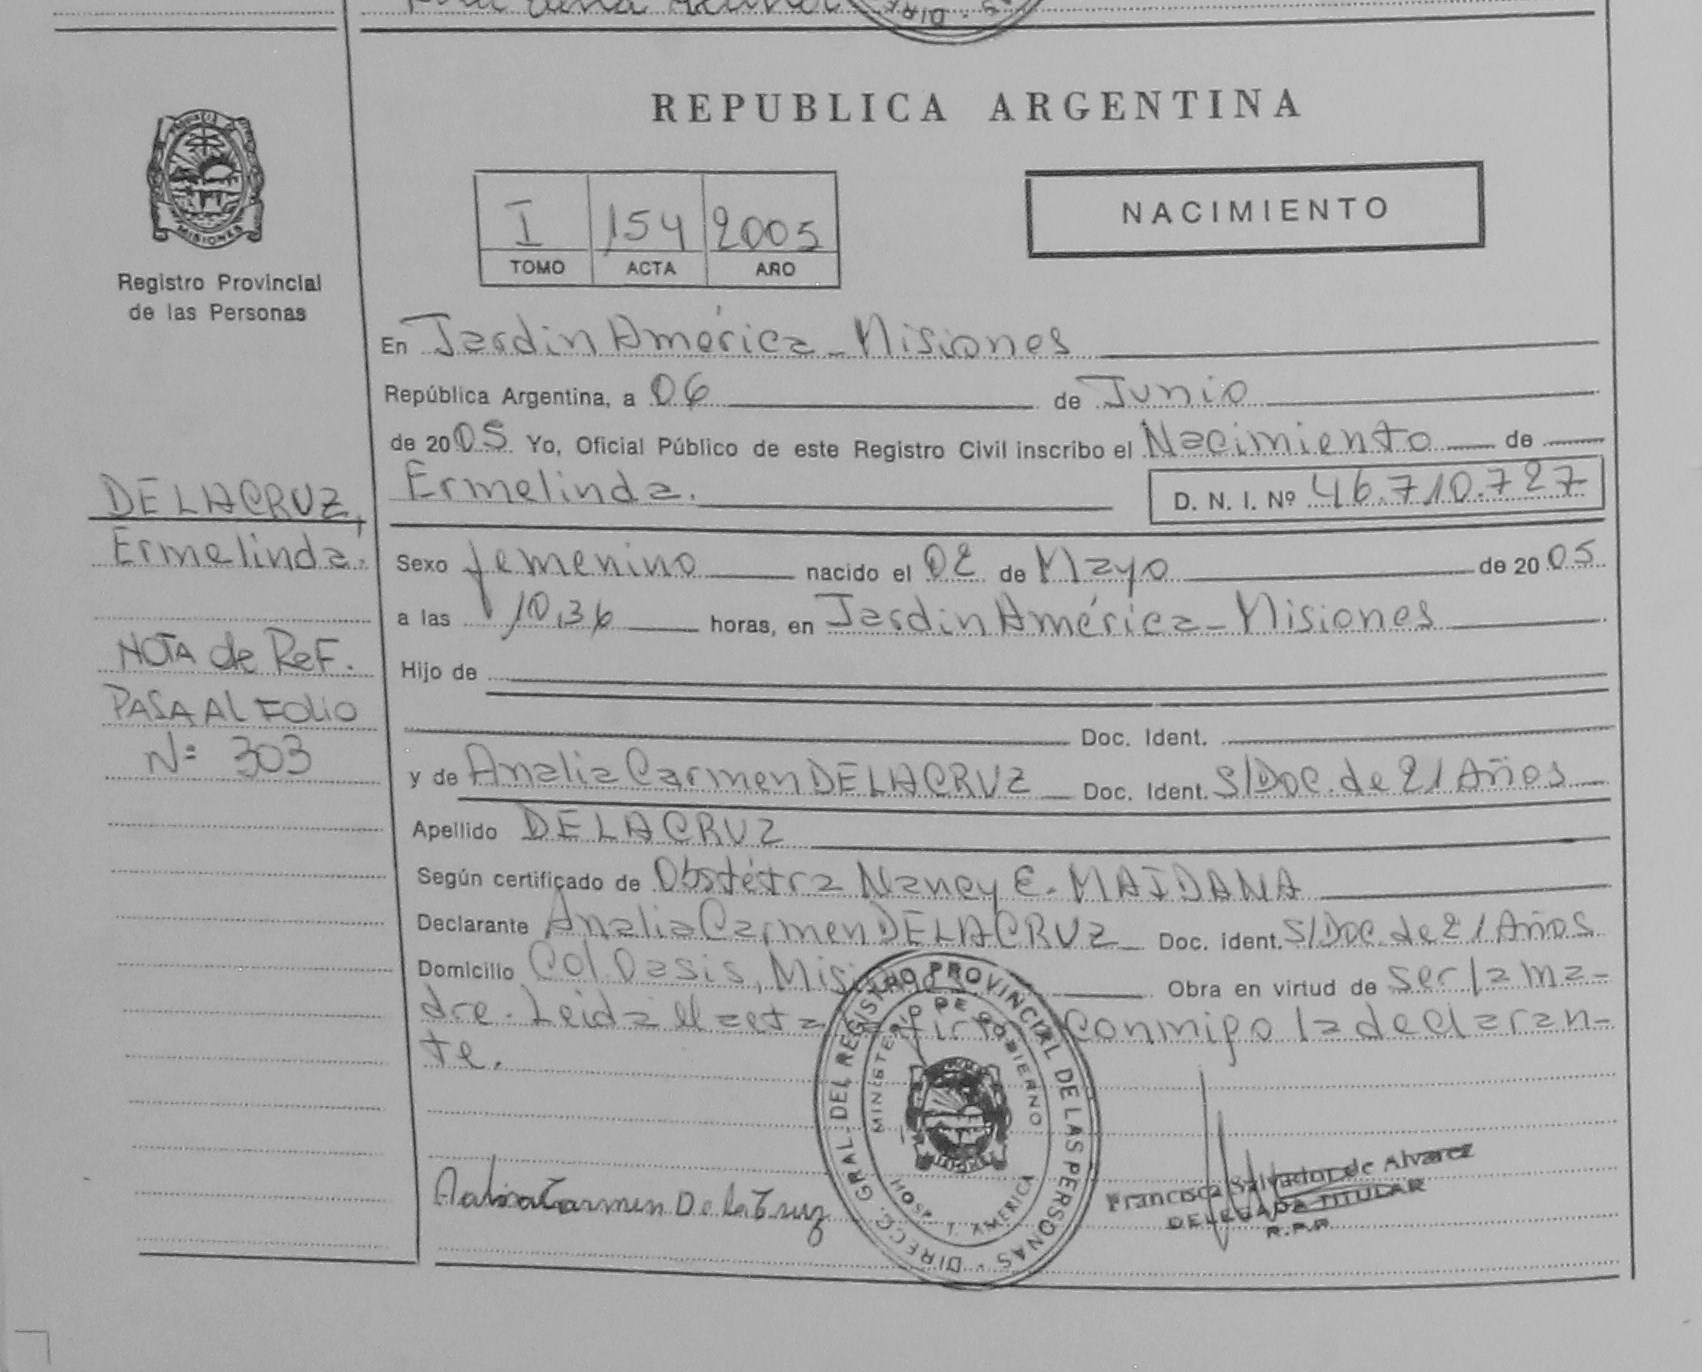 REPUBLICA ARGENTINA
PROVINCIA DE
MISIONES
Registro Provincial
de las Personas
I 154 2005
TOMO ACTA AÑO
NACIMIENTO
En Jardin América - Misiones
República Argentina, a 06 de Junio
de 2005 Yo, Oficial Público de este Registro Civil inscribo el Nacimiento de
Ermelinda. D. N. I. Nº 46.710.727
DE LA CRUZ,
Ermelinda.
NOTA de ReF.
PASA AL FOLIO
Nº 303
Sexo femenino nacido el 02 de Mayo de 2005
a las 10,36 horas, en Jardin América - Misiones
Hijo de
Doc. Ident.
y de Analia Carmen DE LA CRUZ Doc. Ident. S/Doc. de 21 Años
Apellido DE LA CRUZ
Según certificado de Obstétra Nancy E. MAIDANA
Declarante Analia Carmen DE LA CRUZ Doc. ident. S/Doc. de 21 Años
Domicilio Col. Oasis, Misiones. Obra en virtud de ser la ma-
dre. Leida el acta firma conmigo la declaran-
te.
DIRECC. GRAL. DEL REGISTRO PROVINCIAL DE LAS PERSONAS
MINISTERIO DE GOBIERNO
HOSP. J. AMERICA
Analia Carmen De la Cruz
Francisca Salvador de Alvarez
DELEGADA TITULAR
R.P.P.